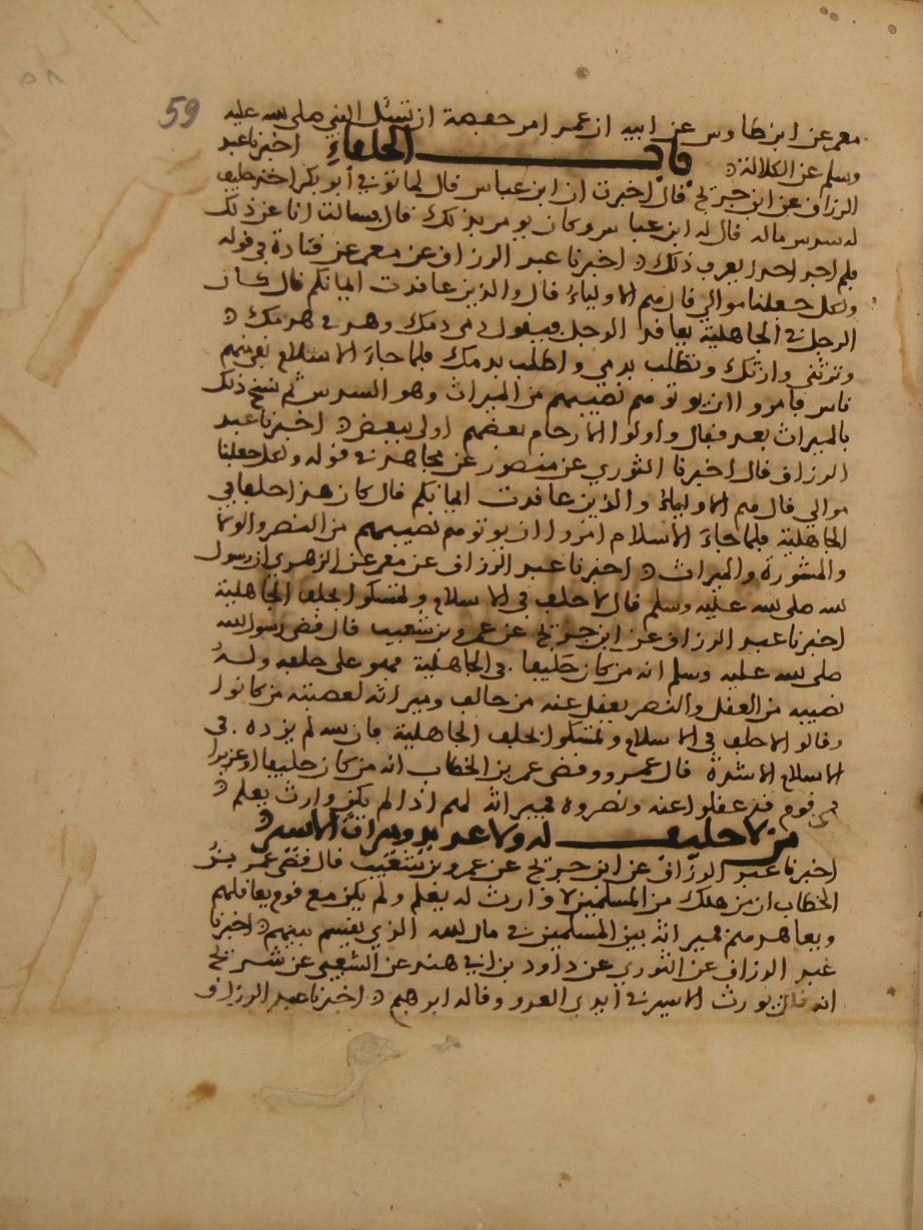 59
معمر عن ابن طاوس عن ابيه ان عمر امر حفصة ان تسئل النبي صلى الله عليه
وسلم عن الكلالة باب الحلفاء اخبرنا عبد
الرزاق عن ابن جريج قال اخبرت ان ابن عباس قال لما توفي أبو بكر اختر حليف
له سدس ماله قال له ابن عباس وكان يومر بذلك قال فسالت انا عن ذلك
فلم اجد احدا يعرف ذلك اخبرنا عبد الرزاق عن معمر عن قتادة في قوله
ولكل جعلنا موالي قال هم الاولياء قال والذين عاقدت ايمانكم قال كان
الرجل في الجاهلية يعاقد الرجل فيقول دمي دمك وهدمي هدمك
وترثني وارثك وتطلب بدمي واطلب بدمك فلما جاء الاسلام بقي منهم
ناس فامروا ان يوتوهم نصيبهم من الميراث وهو السدس ثم نسخ ذلك
بالميراث بعد فقال واولوا الارحام بعضهم اولى ببعض اخبرنا عبد
الرزاق قال اخبرنا الثوري عن منصور عن مجاهد في قوله ولكل جعلنا
موالي قال هم الاولياء والذين عاقدت ايمانكم قال كان هذا حلفا في
الجاهلية فلما جاء الاسلام امروا ان يوتوهم نصيبهم من النصر والولاء
والمشورة والميراث اخبرنا عبد الرزاق عن معمر عن الزهري ان رسول
الله صلى الله عليه وسلم قال لا حلف في الاسلام وتمسكوا بحلف الجاهلية
اخبرنا عبد الرزاق عن ابن جريج عن عمرو بن شعيب قال قضى رسول الله
صلى الله عليه وسلم انه من كان حليفا في الجاهلية فهو على حلفه وله
نصيبه من العقل والنصر يعقل عنه من حالف وميراثه لعصبته من كانوا
وقالوا لا حلف في الاسلام وتمسكوا بحلف الجاهلية فان الله لم يزده في
الاسلام الا شدة قال عمرو وقضى عمر بن الخطاب انه من كان حليفا او عديدا
في قوم قد عقلوا عنه ونصروه فميراثه لهم اذا لم يكن وارث يعلم
من لا حليف له ولا عديد وميراث الاسير
اخبرنا عبد الرزاق عن ابن جريج عن عمرو بن شعيب قال قضى عمر بن
الخطاب ان من هلك من المسلمين لا وارث له يعلم ولم يكن مع قوم يعاقلهم
ويعادهم فميراثه بين المسلمين في مال الله الذي يقسم بينهم اخبرنا
عبد الرزاق عن الثوري عن داود بن ابي هند عن الشعبي عن شريح
انه كان يورث الاسير في أيدي العدو وقاله ابرهيم اخبرنا عبد الرزاق